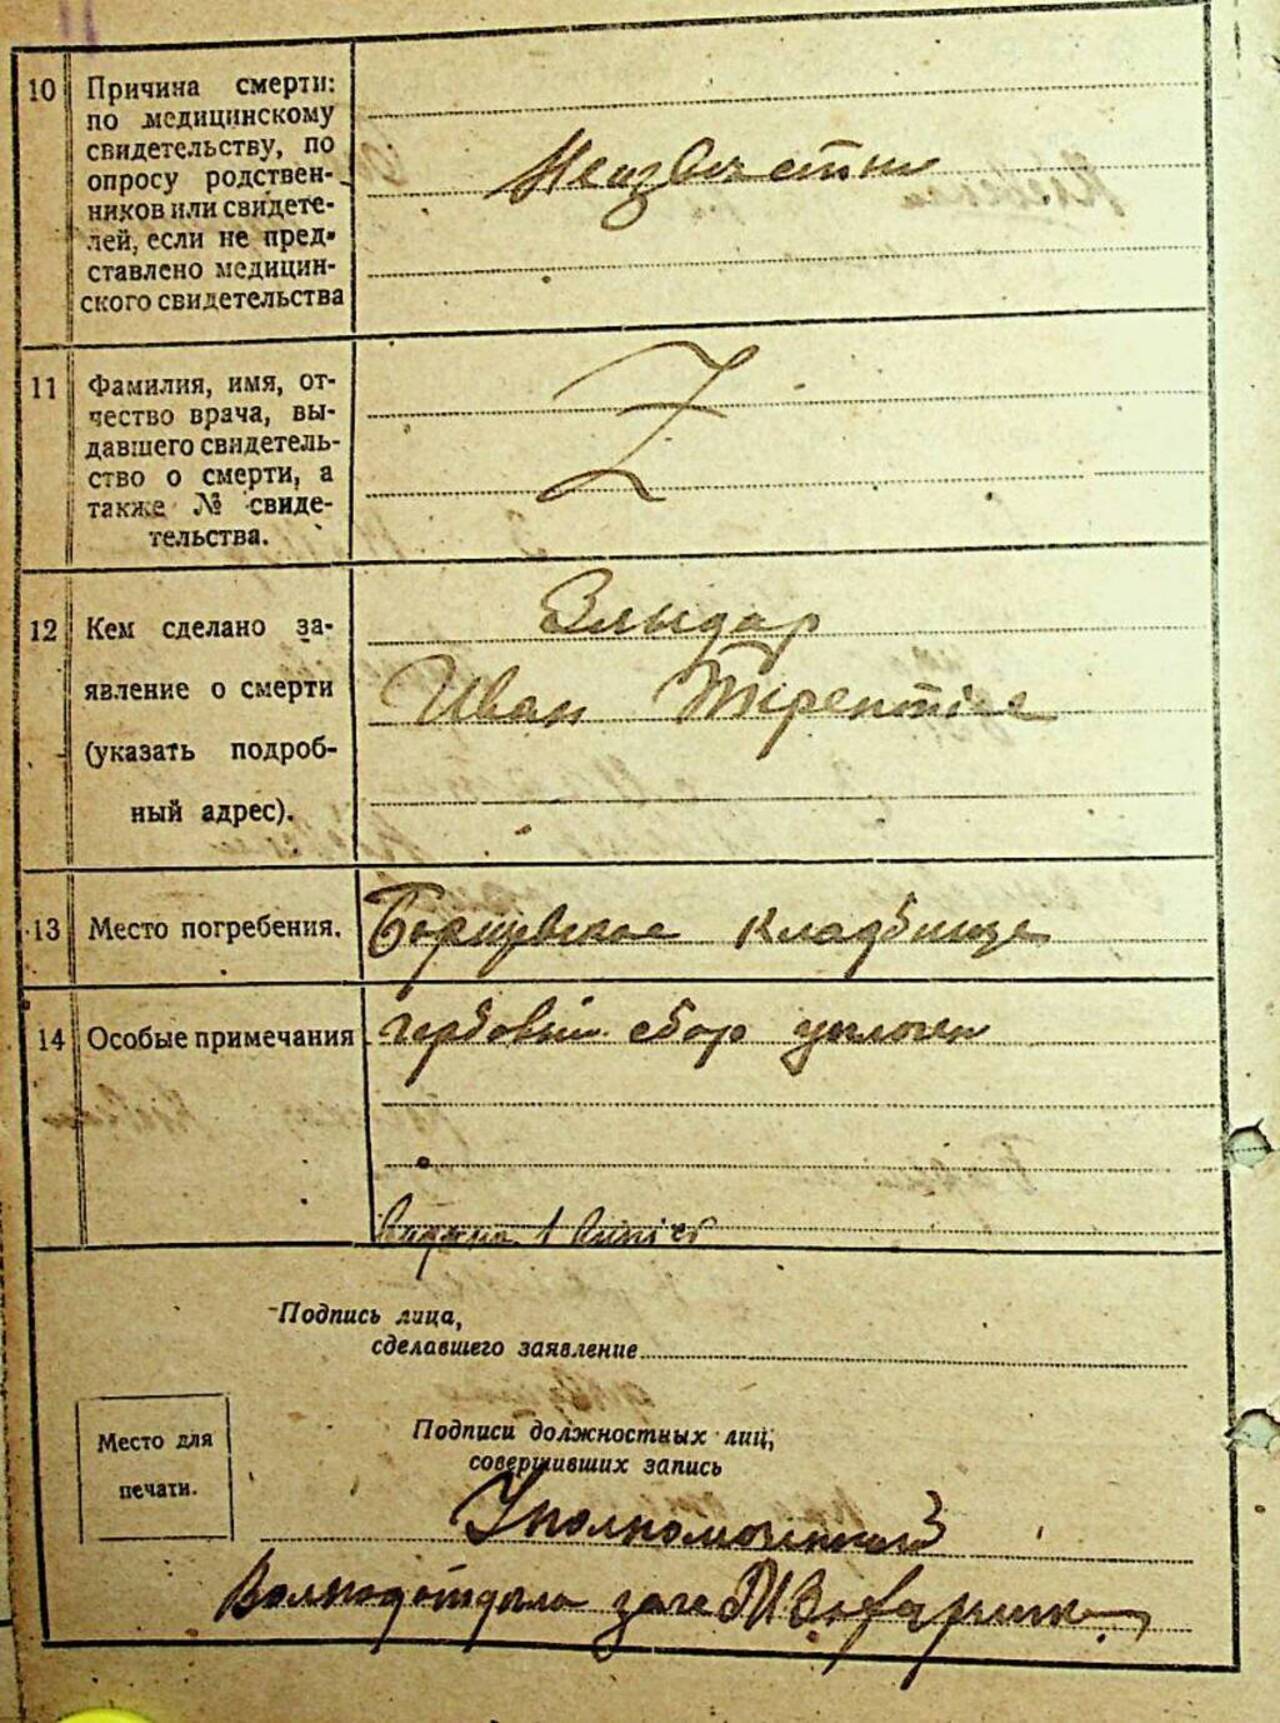 10 Причина смерти:
по медицинскому
свидетельству, по
опросу родствен-
ников или свидете-
лей, если не пред-
ставлено медицин-
ского свидетельства
Неизвестно
11 Фамилия, имя, от-
чество врача, вы-
давшего свидетель-
ство о смерти, а
также № свиде-
тельства.
Z
12 Кем сделано за-
явление о смерти
(указать подроб-
ный адрес).
Злыдар
Иван
13 Место погребения. Борщевское кладбище
14 Особые примечания гербовый сбор уплочен
1
Подпись лица,
сделавшего заявление
Место для
печати.
Подписи должностных лиц,
совершивших запись
Уполномоченный
загс